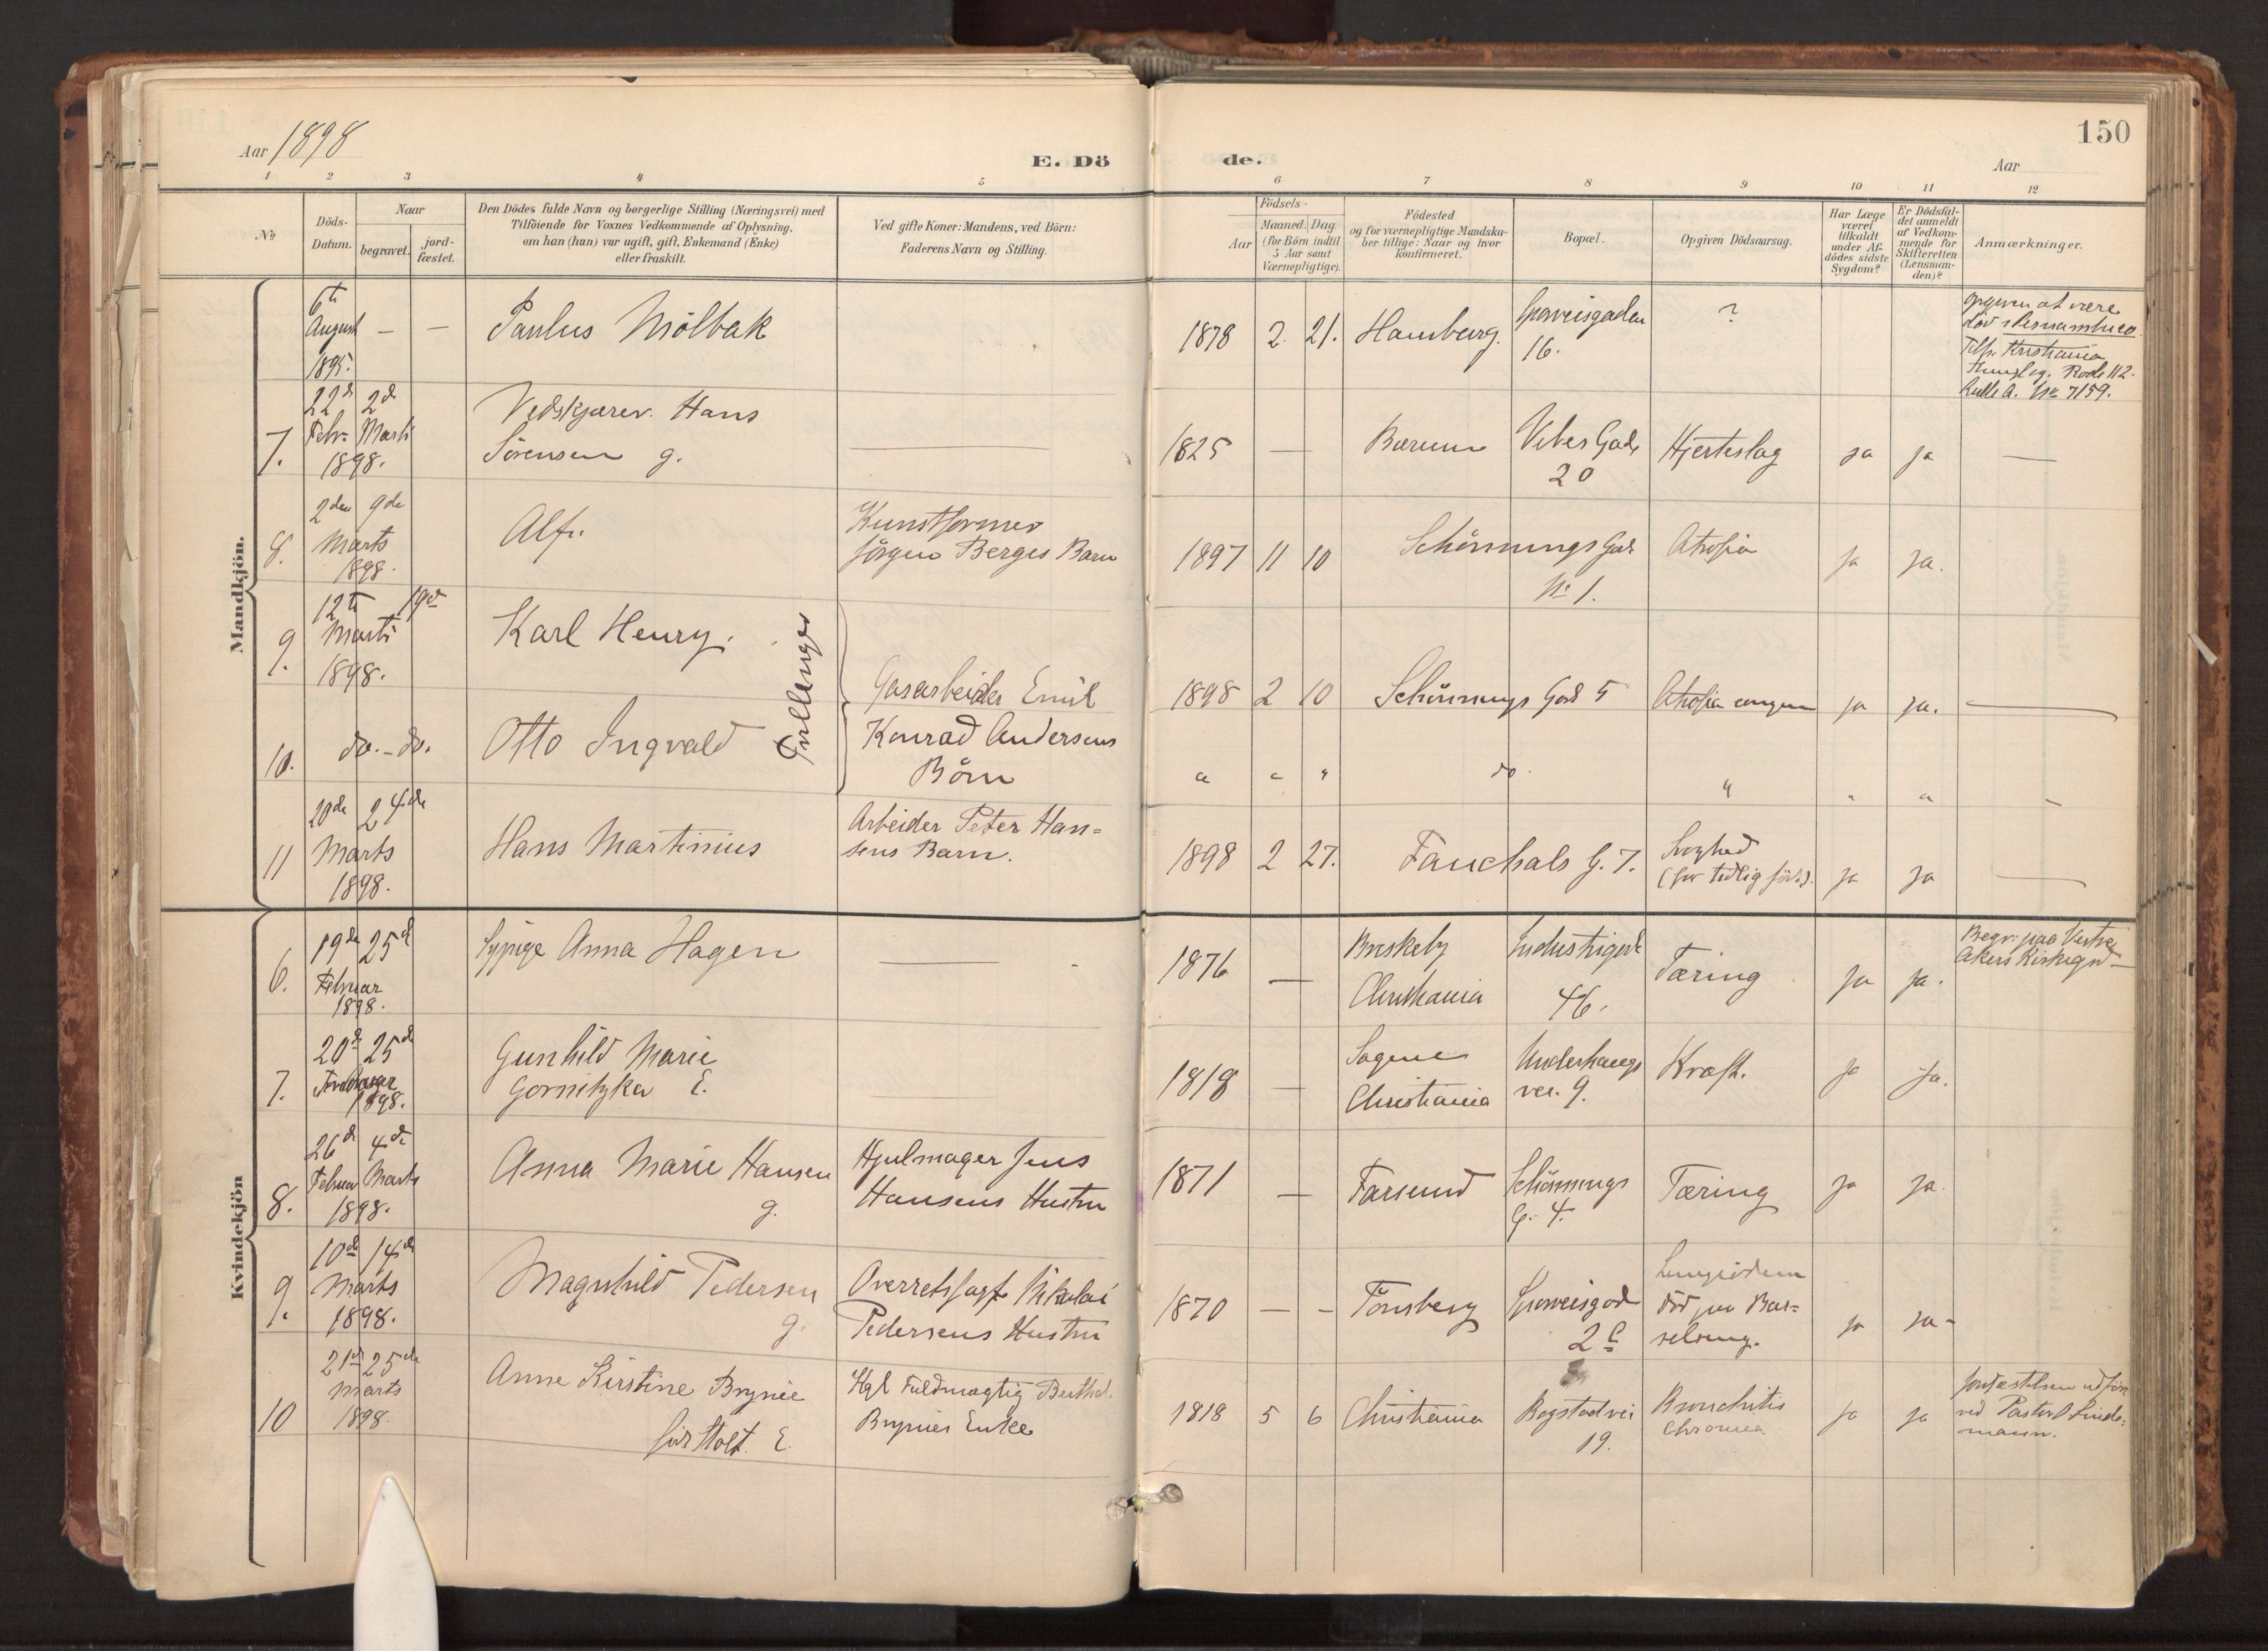 Aar 1898
E. Dö
de.
Aar
150
1 2 3 4 5 6 7 8 9 10 11 12
No
Döds-
Datum.
Naar
begravet.
jord-
fæstet.
Den Dödes fulde Navn og borgerlige Stilling (Næringsvei) med
Tilföiende for Voxnes Vedkommende af Oplysning,
om han (hun) var ugift, gift, Enkemand (Enke)
eller fraskilt.
Ved gifte Koner: Mandens, ved Börn:
Faderens Navn og Stilling.
Födsels-
Aar
Maaned. Dag.
(for Börn indtil
5 Aar samt
Værnepligtige).
Födested
og for værnepligtige Mandska-
ber tillige: Naar og hvor
konfirmeret.
Bopæl.
Opgiven Dödsaarsag.
Har Læge
været
tilkaldt
under Af-
dödes sidste
Sygdom?
Er Dödsfal-
det anmeldt
af Vedkom-
mende for
Skifteretten
(Lensman-
den)?
Anmærkninger.
Mandkjön.
6te
August — —
1895.
Paulus Mölbak
1878 2. 21. Hamburg.
Sporveisgaden
16.
?
Opgiven at være
död i Pernambuco
Tilh. Kristiania
Rode 112.
Rulle A. No 7159.
7.
22d 2d
Febr. Marts
1898.
Vedskjærer. Hans
Sörensen g.
1825 — Bærum
Vibes Gade
20
Hjerteslag ja ja —
8.
2den 9de
Marts
1898.
Alf.
Kunstformer
Jörgen Berges Barn
1897 11 10
Schönnings Gad
No 1.
Atrofia ja ja.
9.
12te 19de
Marts
1898.
Karl Henry.
Tvillinger
Gasarbeider Emil
Konrad Andersens
Börn
1898 2 10 Schönnings Gad 5 Atrofia congen ja ja. —
10. do. - do. Otto Ingvald
" " " do. " " " -
11
20de 24de
Marts
1898.
Hans Martinius
Arbeider Peter Han=
sens Barn.
1898 2 27. Fauchals G. 7.
Svaghed
(for tidlig föd.).
ja ja —
Kvindekjön
6.
19de 25d
Februar
1898.
Sypige Anna Hagen
1876 —
Briskeby
Christiania
Industrigad
46.
Tæring ja ja.
Begr. paa Vestre
Akers Kirkegrd
7.
20de 25de
Februar
1898.
Gunhild Marie
Gornitzka E.
1818 —
Sagene
Christiania
Underhaugs
vei. 9.
Kræft. ja ja.
8.
26d 4de
Februar Marts
1898.
Anna Marie Hansen
g.
Hjulmager Jens
Hansens Hustru
1871 — Farsund
Schönnings
G. 4.
Tæring ja ja.
9.
10de 14de
Marts
1898.
Magnhild Pedersen
g.
Overretssagf. Nikolai
Pedersens Hustru
1870 — - Tönsberg
Sporveisgad
2 c
Lungeödem
död paa Bar=
selseng.
ja ja-
10
21de 25de
Marts
1898.
Anne Kirstine Brynie
föd Stolt. E.
Kgl Fuldmægtig Berthel
Brynies Enke
1818 5 6 Christiania
Bogstadvei
19.
Bronchitis
Chronica
ja ja
Jordfæstelsen udför
ved Pastor Linde=
mann.